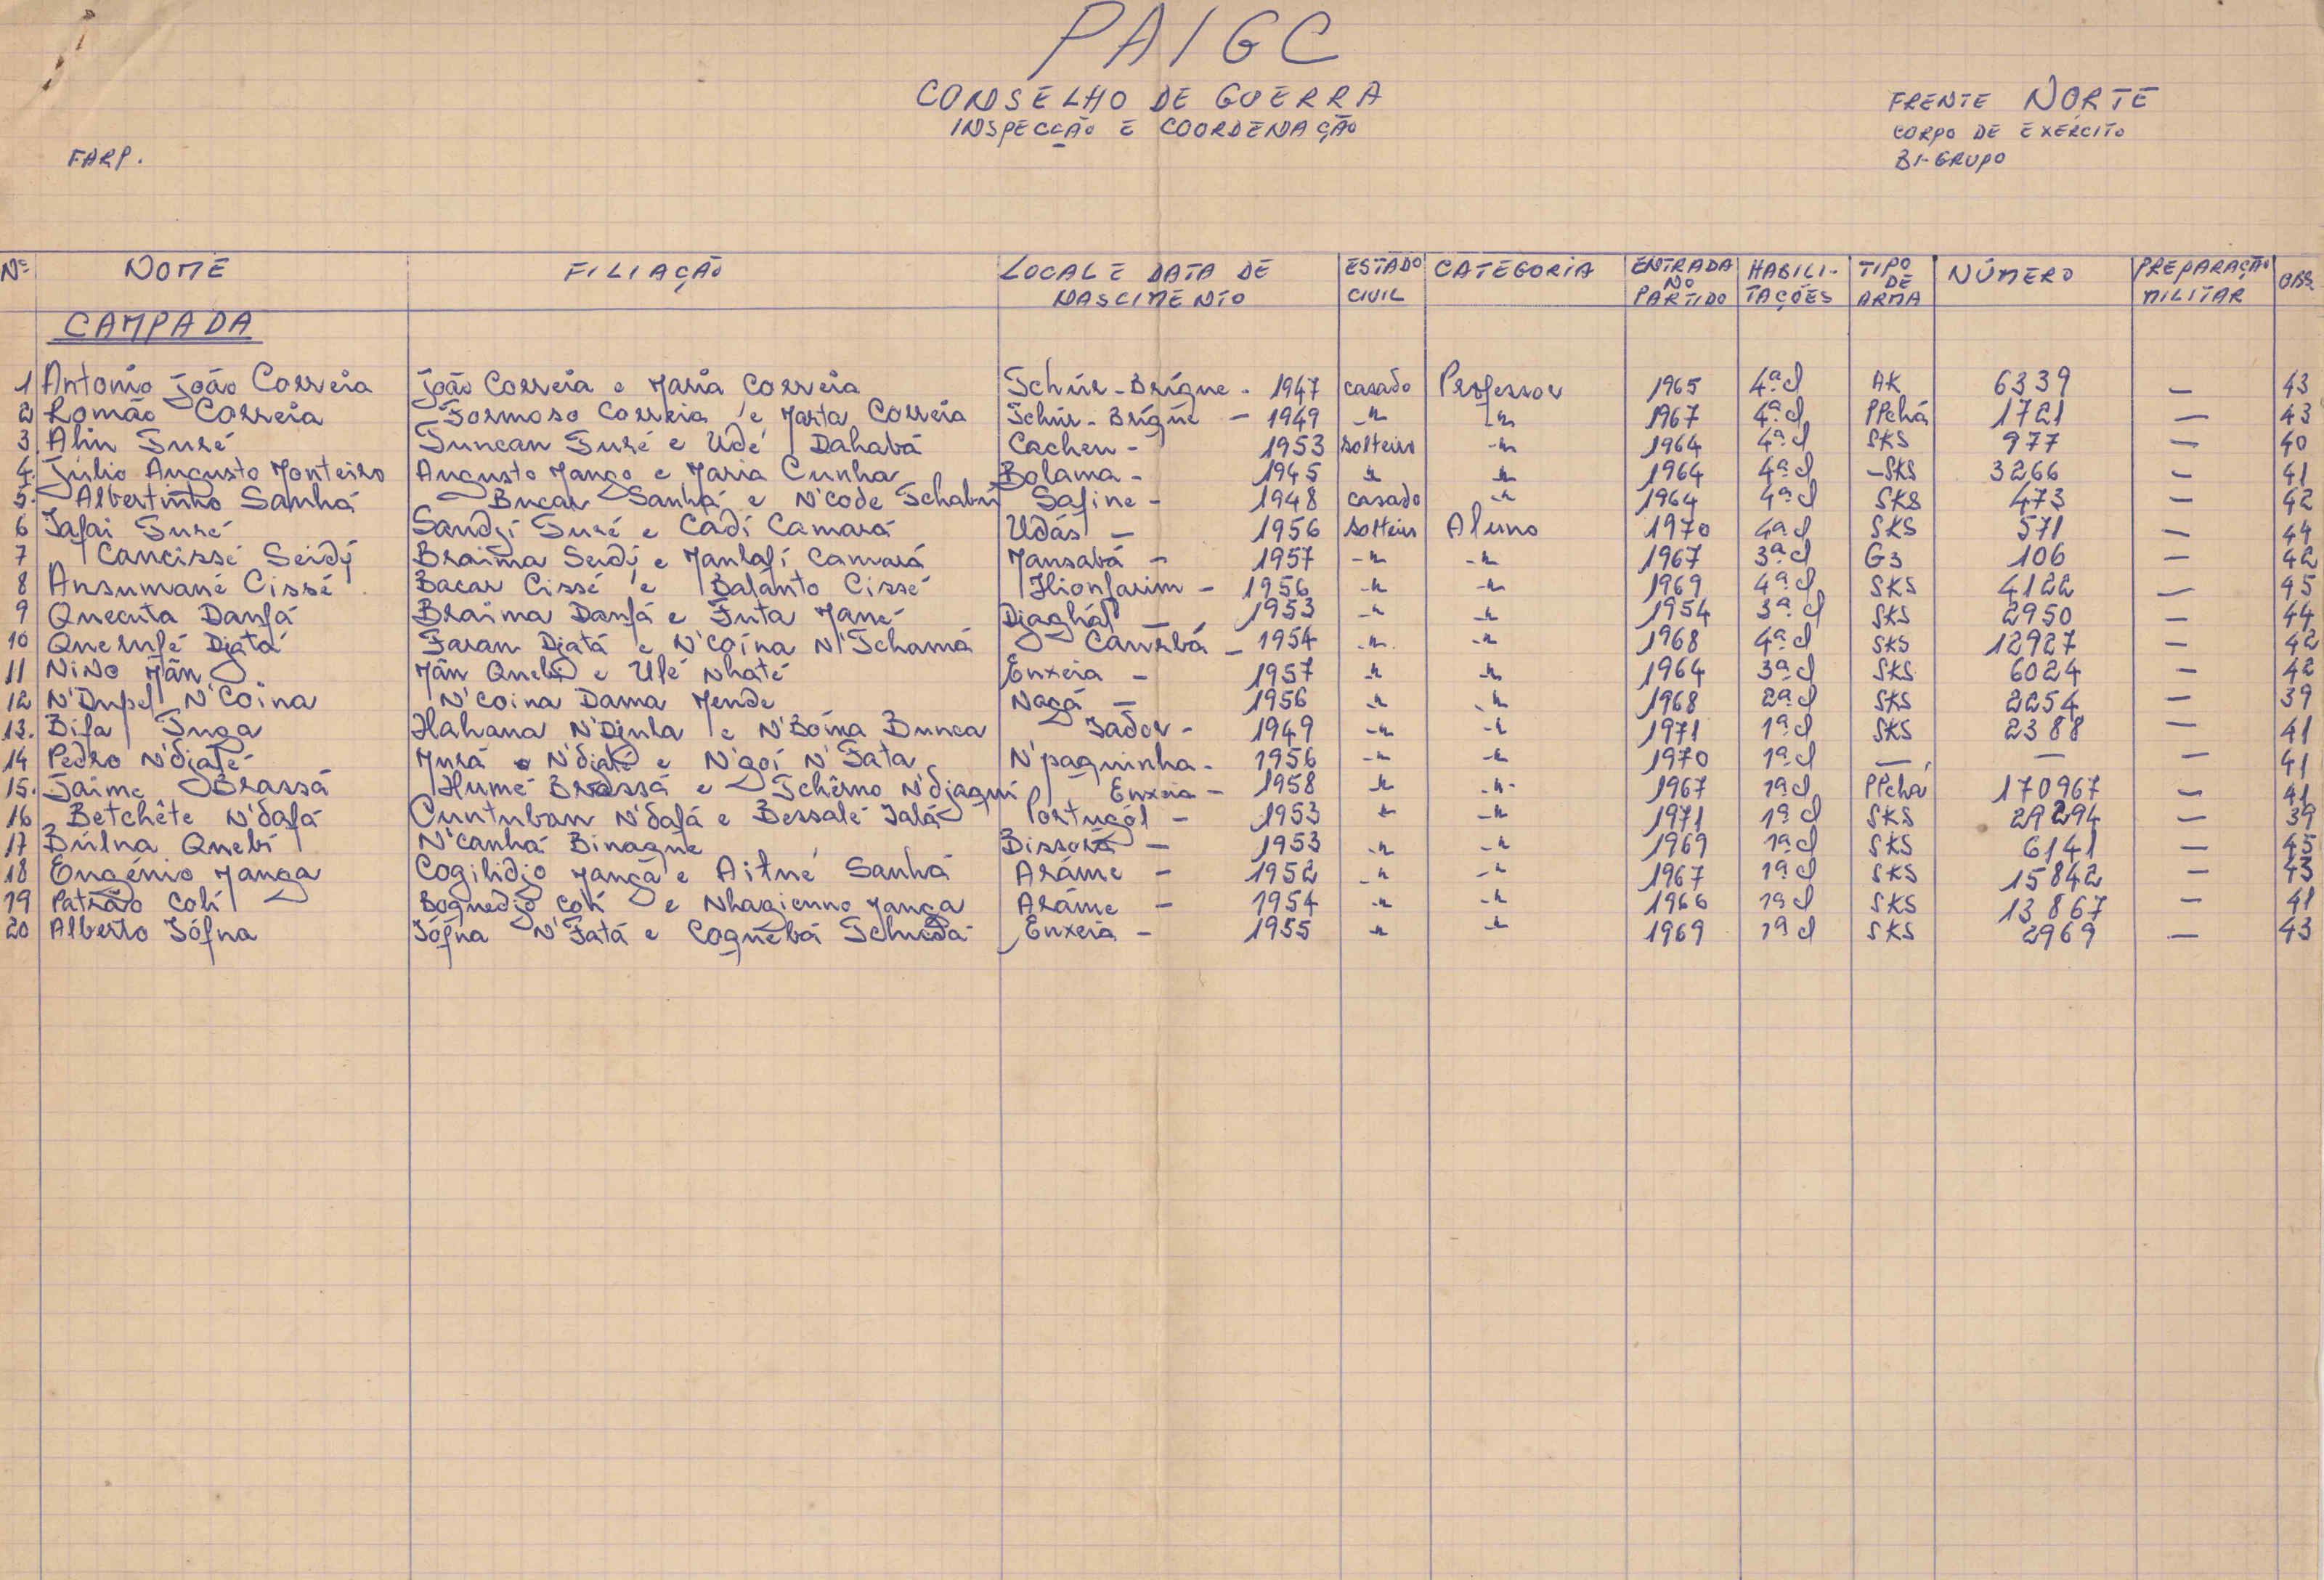 PAIGC
CONSELHO DE GUERRA
INSPECÇÃO E COORDENAÇÃO
FRENTE NORTE
CORPO DE EXÉRCITO
BI-GRUPO
FARP.
Nº NOME FILIAÇÃO LOCAL E DATA DE NASCIMENTO ESTADO CIVIL CATEGORIA ENTRADA NO PARTIDO HABILI-TAÇÕES TIPO DE ARMA NÚMERO PREPARAÇÃO MILITAR OBS.
CAMPADA
1 Antonio João Correia João Correia e Maria Correia Tchúr-Brígue - 1947 casado Professor 1965 4ª cl AK 6339 — 43
2 Romão Correia Formoso Correia e Marta Correia Tchúr-Brígue - 1949 -"- -"- 1967 4ª cl PPchá 1721 — 43
3. Aliu Turé Tuncan Turé e Udé Dahabá Cacheu - 1953 solteiro -"- 1964 4ª cl SKS 977 — 40
4. Júlio Augusto Monteiro Augusto Mango e Maria Cunha Bolama - 1945 -"- -"- 1964 4ª cl -SKS 3266 — 41
5. Albertinho Sanhá Bucar Sanhá e N'code Safine - 1948 casado -"- 1964 4ª cl SKS 473 — 42
6 Iafai Turé Sandjí Turé e Cadí Camará Udás — 1956 solteiro Aluno 1970 4ª cl SKS 571 — 44
7 Cancissé Seidý Braima Seidý e Mantafí Camará Mansabá - 1957 -"- -"- 1967 3ª cl G3 106 — 42
8 Ansumané Cissé Bacar Cissé e Bafanto Cissé 1956 -"- -"- 1969 4ª cl SKS 4122 — 45
9 Quecuta Danfá Braima Danfá e Futa Mané 1953 -"- -"- 1954 3ª cl SKS 2950 — 44
10 Querufé Djatá Faran Djatá e N'Coína N'Tchamá 1954 -"- -"- 1968 4ª cl SKS 12927 — 42
11 NiNo Mân Mân e Ulé Nhaté Enxeia — 1957 -"- -"- 1964 3ª cl SKS 6024 — 42
12 N'Dupel N'Coina N'Coina Dama Mende Nagá — 1956 -"- -"- 1968 2ª cl SKS 2254 — 39
13. Bifa Tuga N'Djula e N'Boína Bunca Iador - 1949 -"- -"- 1971 1ª cl SKS 2388 — 41
14 Pedro N'djaté Murá N'djaté e N'goí N'Fata N'paguinha - 1956 -"- -"- 1970 1ª cl — — — 41
15. Jaime Brassá Humé Brassá e Tchêrno N'djaquí Enxeia - 1958 -"- -"- 1967 1ª cl PPchá 170967 — 41
16 Betchête N'dafá Cuntuban N'dafá e Bessalé Ialá Portugál - 1953 -"- -"- 1971 1ª cl SKS 29294 — 39
17 Búlna Quebí N'canhá Binague 1953 -"- -"- 1969 1ª cl SKS 6141 — 45
18 Eugénio Manga Cogilidjo Mança e Sanhá Aráme - 1952 -"- -"- 1967 1ª cl SKS 15842 — 43
19 Patrão Colí Boguedjo Colí e Nhagienno Mança Aráme - 1954 -"- -"- 1966 1ª cl SKS 13867 — 41
20 Alberto Iófna Iófna N'Fatá e Coguebá Tchuda Enxeia - 1955 -"- -"- 1969 1ª cl SKS 2969 — 43